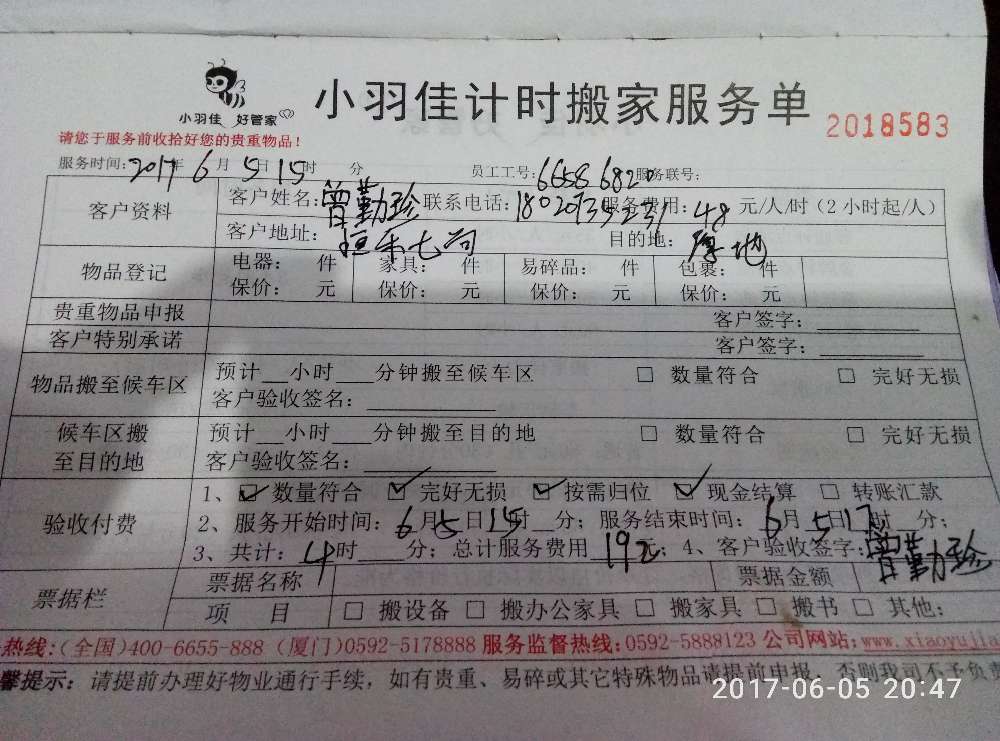 小羽佳 好管家
小羽佳计时搬家服务单
2018583
请您于服务前收拾好您的贵重物品!
服务时间:2017年6月5日15时 分 员工工号:6658 6820 服务联号:
客户资料 客户姓名:曾勤珍 联系电话: 服务费用:48元/人/时(2小时起/人)
客户地址: 目的地:
物品登记 电器: 件 家具: 件 易碎品: 件 包裹: 件
保价: 元 保价: 元 保价: 元 保价: 元
贵重物品申报 客户签字:
客户特别承诺 客户签字:
物品搬至候车区 预计 小时 分钟搬至候车区 □ 数量符合 □ 完好无损
客户验收签名:
候车区搬至目的地 预计 小时 分钟搬至目的地 □ 数量符合 □ 完好无损
客户验收签名:
验收付费 1、☑ 数量符合 ☑ 完好无损 ☑ 按需归位 ☑ 现金结算 □ 转账汇款
2、服务开始时间:6月5日15时 分;服务结束时间:6月5日17时 分;
3、共计:4时 分;总计服务费用192元;4、客户验收签字:曾勤珍
票据栏 票据名称 票据金额
项 目 □ 搬设备 □ 搬办公家具 □ 搬家具 □ 搬书 □ 其他:
热线:(全国)400-6655-888 (厦门)0592-5178888 服务监督热线:0592-5888123 公司网站:www.xiaoyujia
馨提示:请提前办理好物业通行手续,如有贵重、易碎或其它特殊物品请提前申报,否则我司不予负责
2017-06-05 20:47